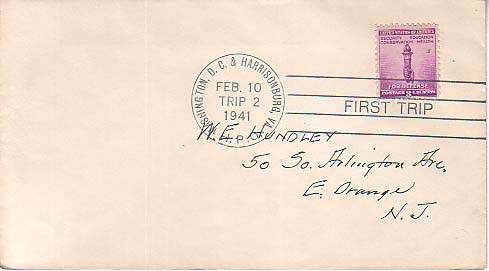 UNITED STATES OF AMERICA
SECURITY EDUCATION
CONSERVATION HEALTH
FOR DEFENSE
POSTAGE 3 CENTS
WASHINGTON, D. C. & HARRISONBURG, VA.
FEB. 10
TRIP 2
1941
H.P.O.
FIRST TRIP
W.E. HUNDLEY
50 So. Arlington Ave,
E. Orange
N. J.